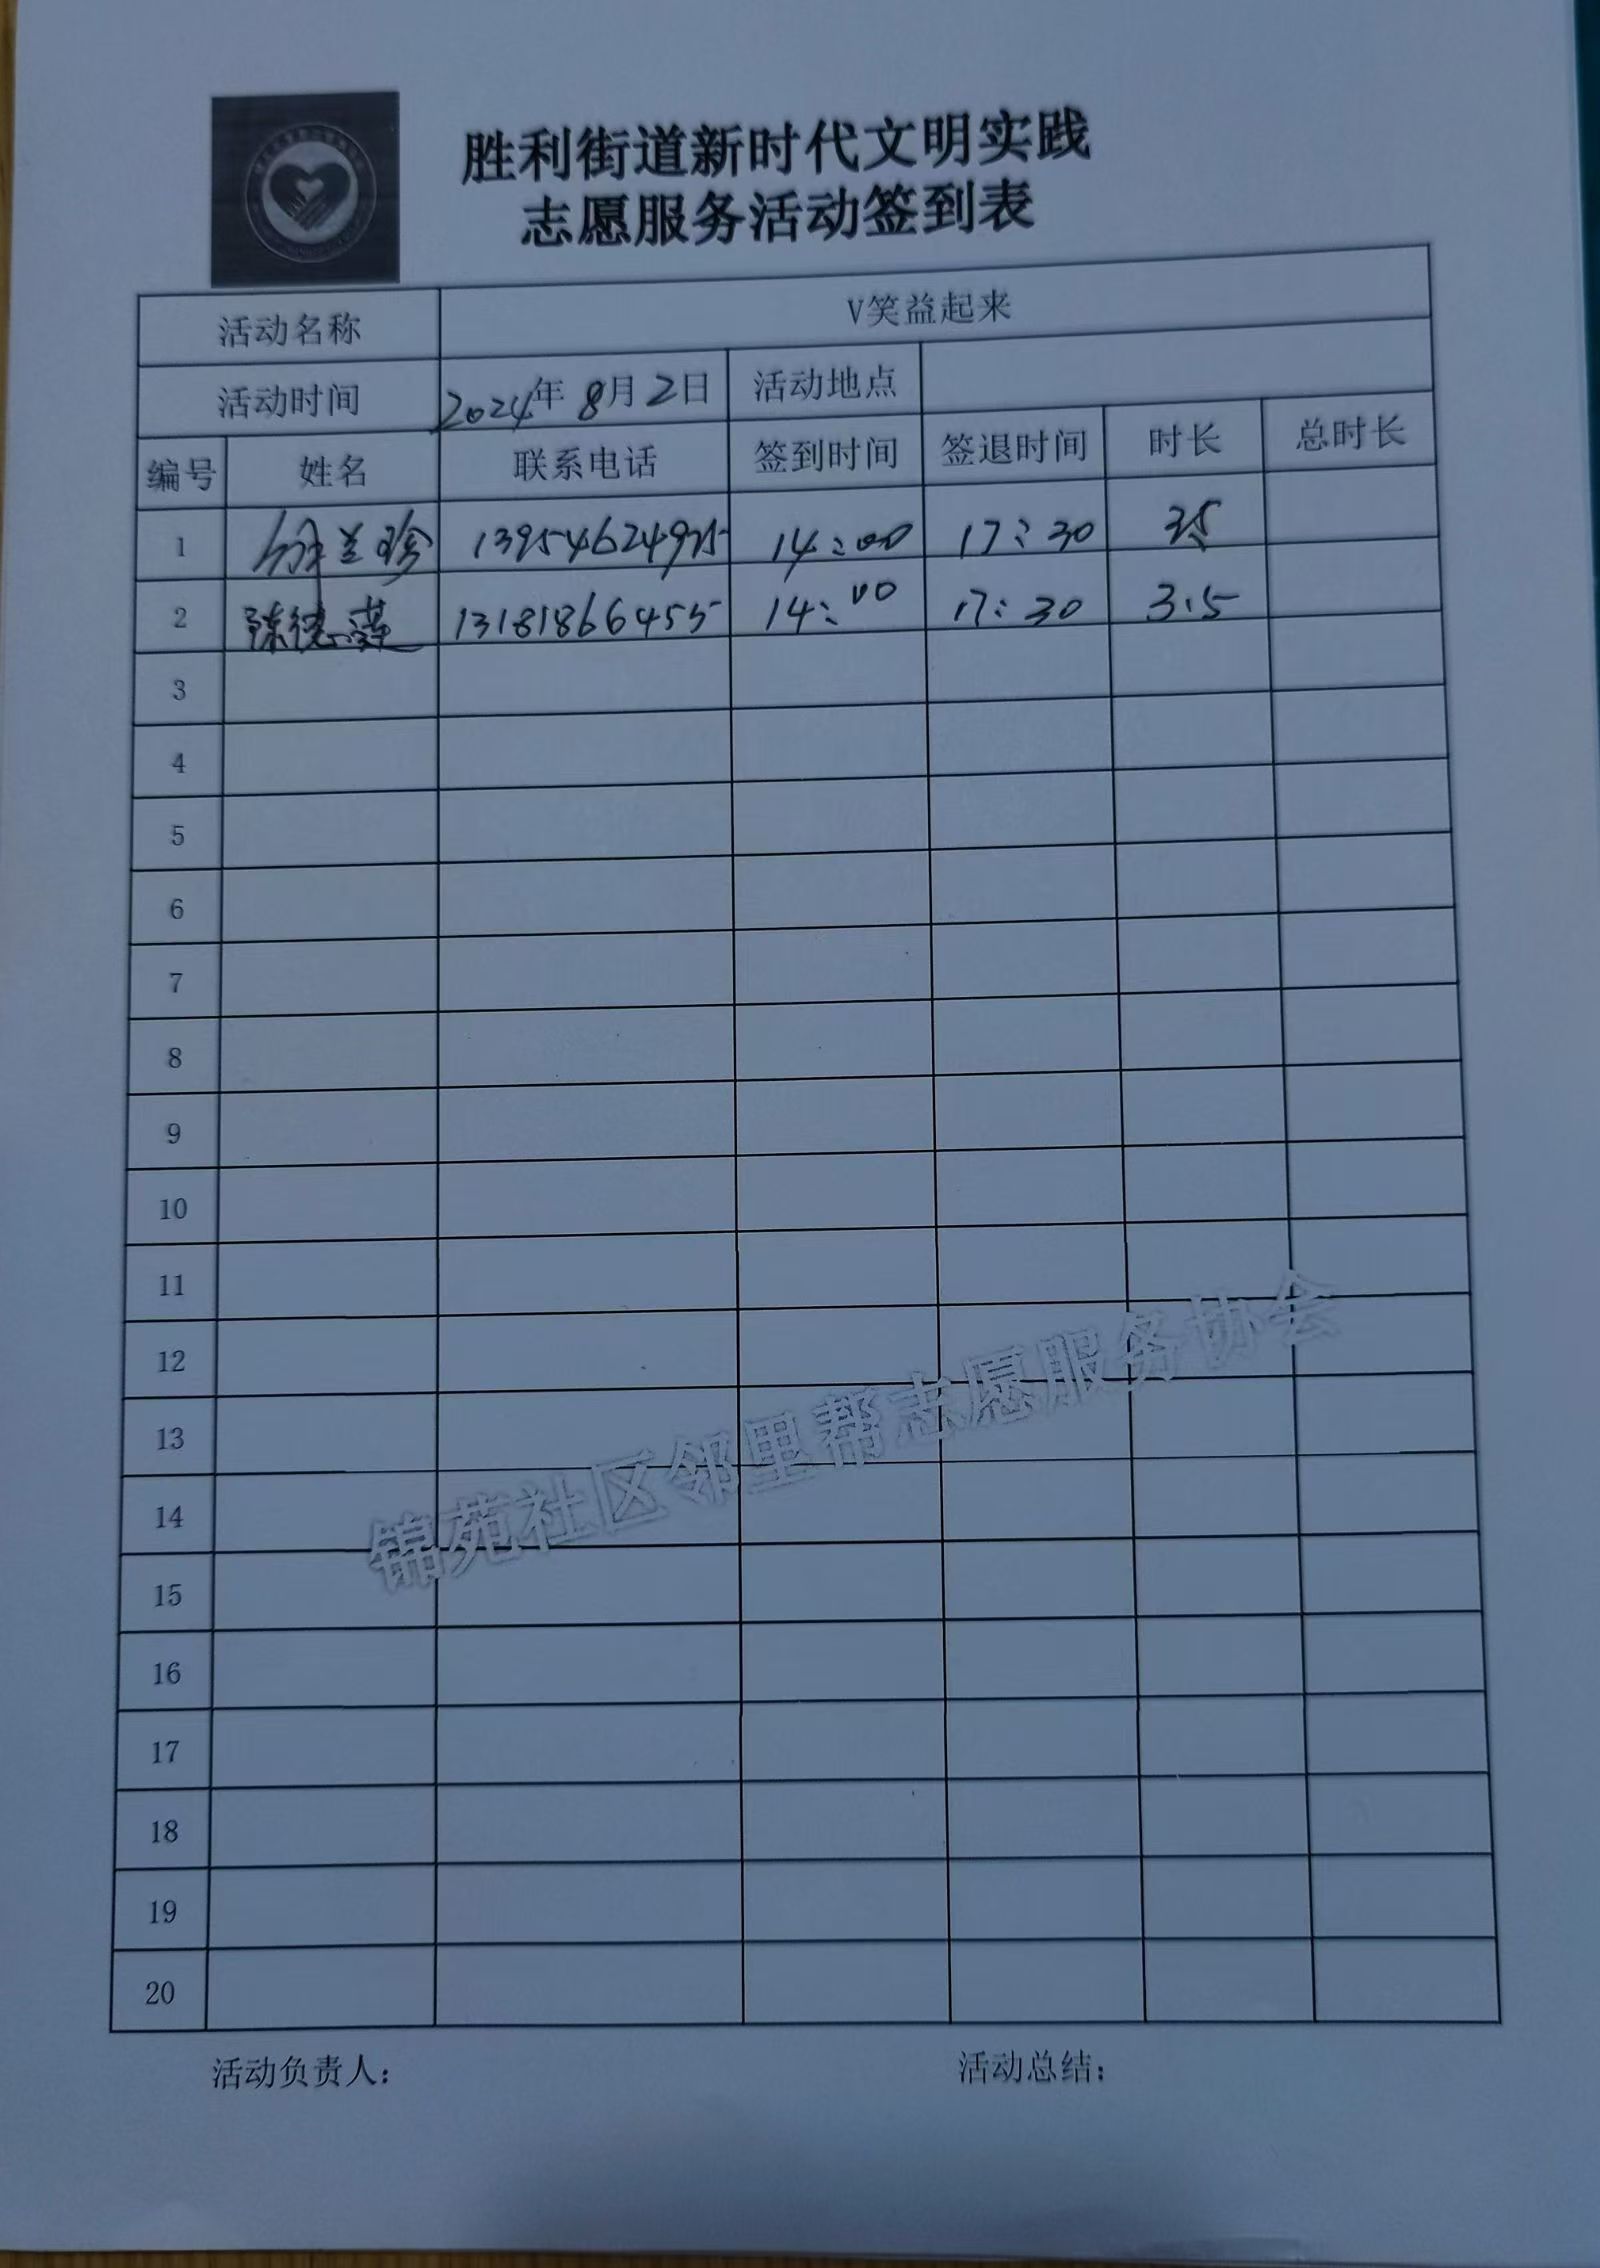 胜利街道新时代文明实践
志愿服务活动签到表
活动名称 V笑益起来
活动时间 2024年 8月2日 活动地点
编号 姓名 联系电话 签到时间 签退时间 时长 总时长
1 徐兰珍 14:00 17:30 3.5
2 陈德莲 13181866455 14:00 17:30 3.5
3
4
5
6
7
8
9
10
11
12
13
14
15
16
17
18
19
20
锦苑社区邻里帮志愿服务协会
活动负责人: 活动总结: